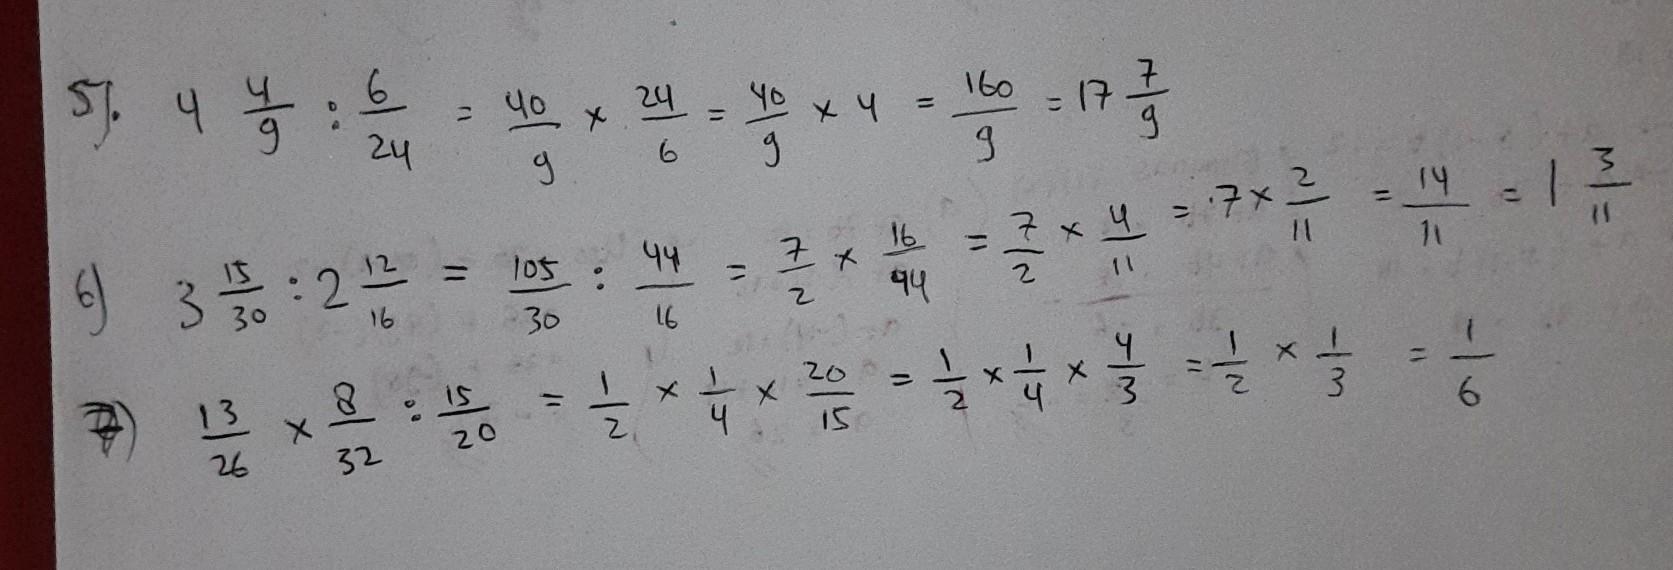 5). 4 4/9 : 6/24 = 40/9 × 24/6 = 40/9 × 4 = 160/9 = 17 7/9
6) 3 15/30 : 2 12/16 = 105/30 : 44/16 = 7/2 × 16/44 = 7/2 × 4/11 = 7 × 2/11 = 14/11 = 1 3/11
7) 13/26 × 8/32 : 15/20 = 1/2 × 1/4 × 20/15 = 1/2 × 1/4 × 4/3 = 1/2 × 1/3 = 1/6